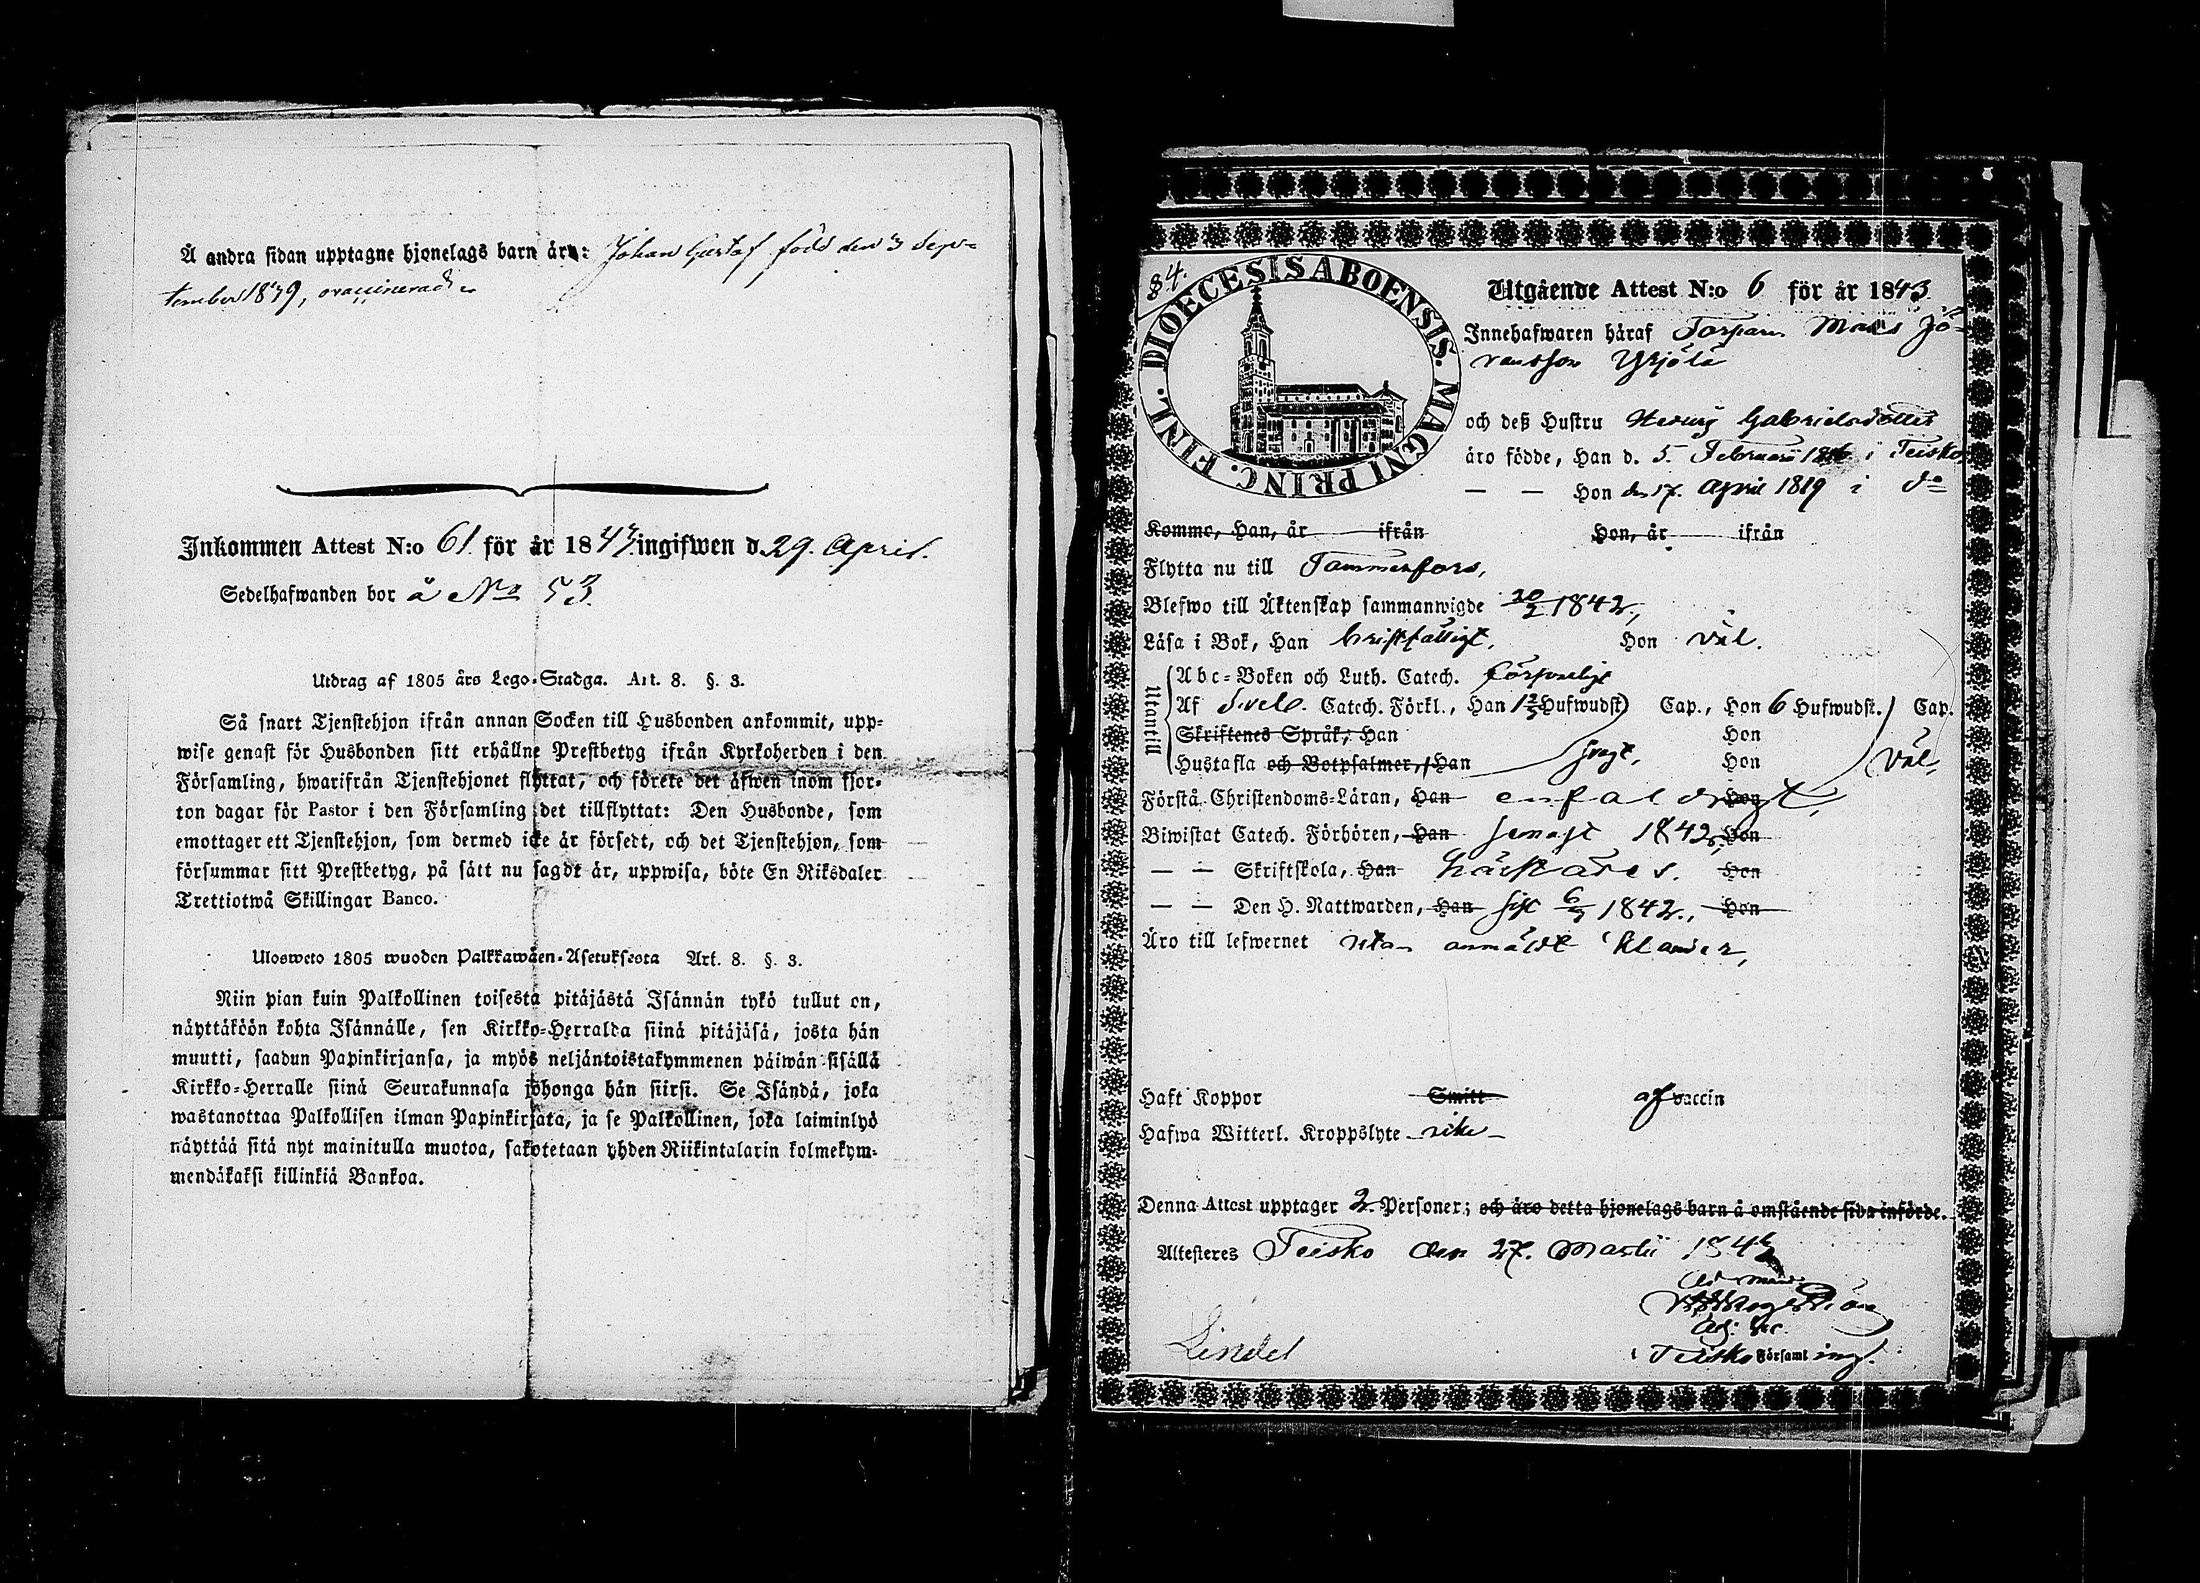 Å andra sidan upptagne hjonelags barn äro: Johan Gustaf född den 3 Sep-
tember 1839, ovaccinerad
Inkommen Attest N:o 61 för år 1843 ingifwen d. 29. April.
Sedelhafwanden bor å No 53.
Utdrag af 1805 års Lego-Stadga. Art. 8. §. 3.
Så snart Tjenstehjon ifrån annan Socken till Husbonden ankommit, upp-
wise genast för Husbonden sitt erhållne Prestbetyg ifrån Kyrkoherden i den
Församling, hwarifrån Tjenstehjonet flyttat, och förete det äfwen inom fjor-
ton dagar för Pastor i den Församling det tillflyttat: Den Husbonde, som
emottager ett Tjenstehjon, som dermed icke är försedt, och det Tjenstehjon, som
försummar sitt Prestbetyg, på sätt nu sagdt är, uppwisa, böte En Riksdaler
Trettiotwå Skillingar Banco.
Ulosweto 1805 wuoden Palkkawäen-Asetuksesta Art. 8. §. 3.
Niin pian kuin Palkollinen toisesta pitäjästä Isännän tykö tullut on,
näyttäköön kohta Isännälle, sen Kirkko-Herralda siinä pitäjäsä, josta hän
muutti, saadun Papinkirjansa, ja myös neljäntoistakymmenen päiwän sisällä
Kirkko-Herralle siinä Seurakunnasa johonga hän siirsi. Se Isändä, joka
wastanottaa Palkollisen ilman Papinkirjata, ja se Palkollinen, joka laiminlyö
näyttää sitä nyt mainitulla muotoa, sakotetaan yhden Riikintalarin kolmekym-
mendäkaksi killinkiä Bankoa.
§ 4.
DIOECESIS ABOENSIS. MAGNI PRINC. FINL.
Utgående Attest N:o 6 för år 1843
Innehafwaren häraf Torparen Mats Jö-
ransson Yrjölä
och deß Hustru Hedvig Gabrielsdotter
äro födde, Han d. 5. Februarii i Teisko
— — Hon den 17. April 1819 i do
Komme, Han, år ifrån Hon, år ifrån
Flytta nu till Tammerfors,
Blefwo till Äktenskap sammanwigde 20/2 1842,
Läsa i Bok, Han bristfälligt. Hon väl.
Utantill
Abc-Boken och Luth. Catech. försvarligt
Af Sveb. Catech. Förkl., Han Hufwudst. Cap., Hon 6 Hufwudst. Cap.
Skriftenes Språk, Han Hon
Hustafla och Botpsalmer, Han svagt, Hon väl,
Förstå Christendoms-Läran, Han enfaldigt, Hon
Biwistat Catech. Förhören, Han senast 1842, Hon
— — Skriftskola, Han Hon
— — Den H. Nattwarden, Han sist 1842., Hon
Äro till lefwernet utan anmäldt klander,
Haft Koppor Smitt af vaccin
Hafwa Witterl. Kroppslyte icke
Denna Attest upptager 2 Personer; och äro detta hjonelags barn å omstående sida införde.
Attesteres Teisko den 27. Martii
i Teisko Församl ing.
Lindel